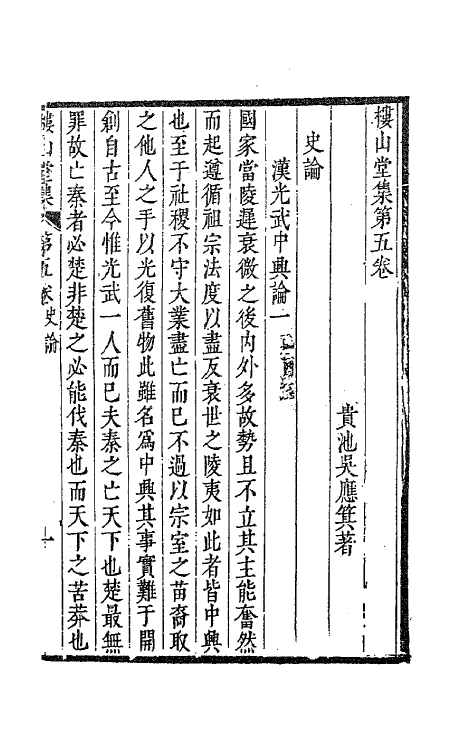 樓山堂集第五卷
貴池吳應箕著
史論
漢光武中興論一
國家當陵遲衰微之後內外多故勢且不立其主能奮然
而起遵循祖宗法度以盡反衰世之陵夷如此者皆中興
也至于社稷不守大業盡亡而已不過以宗室之苗裔取
之他人之手以光復舊物此雖名爲中興其事實難于開
創自古至今惟光武一人而已夫秦之亡天下也楚最無
罪故亡秦者必楚非楚之必能伐秦也而天下之苦莽也
樓山堂集 第五卷史論 一